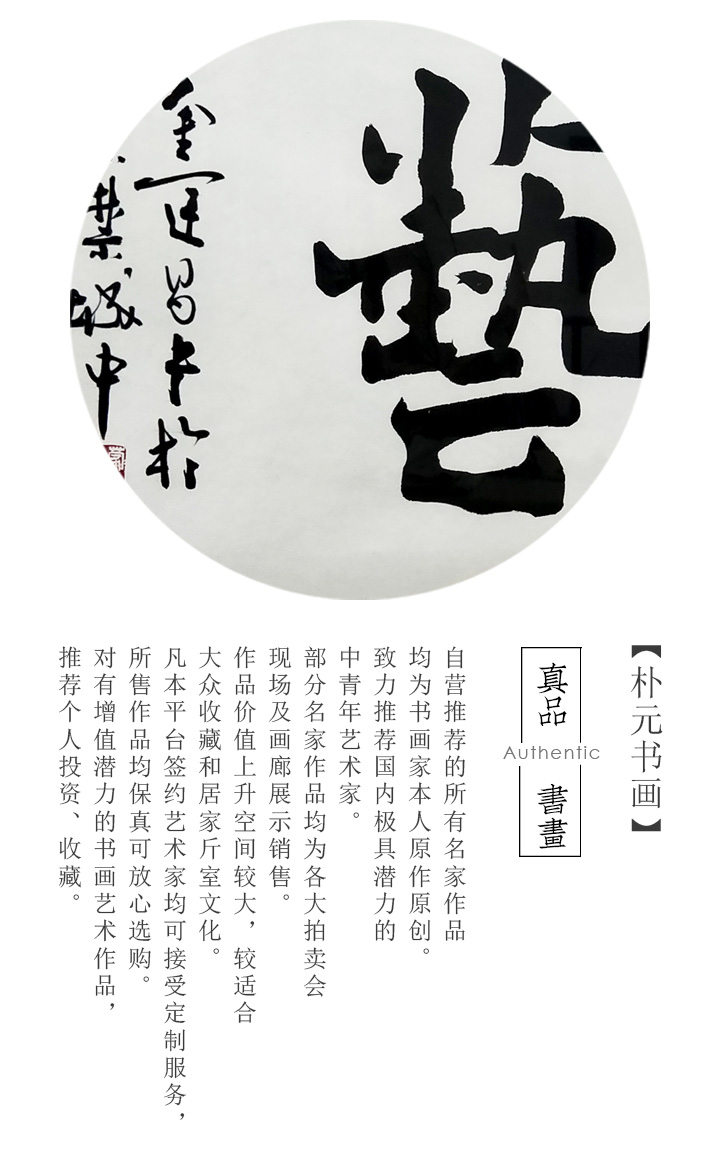 藝
【朴元书画】
真品 書畫
Authentic
自营推荐的所有名家作品
均为书画家本人原作原创。
致力推荐国内极具潜力的
中青年艺术家。
部分名家作品均为各大拍卖会
现场及画廊展示销售。
作品价值上升空间较大，较适合
大众收藏和居家斤室文化。
凡本平台签约艺术家均可接受定制服务，
所售作品均保真可放心选购。
对有增值潜力的书画艺术作品，
推荐个人投资、收藏。